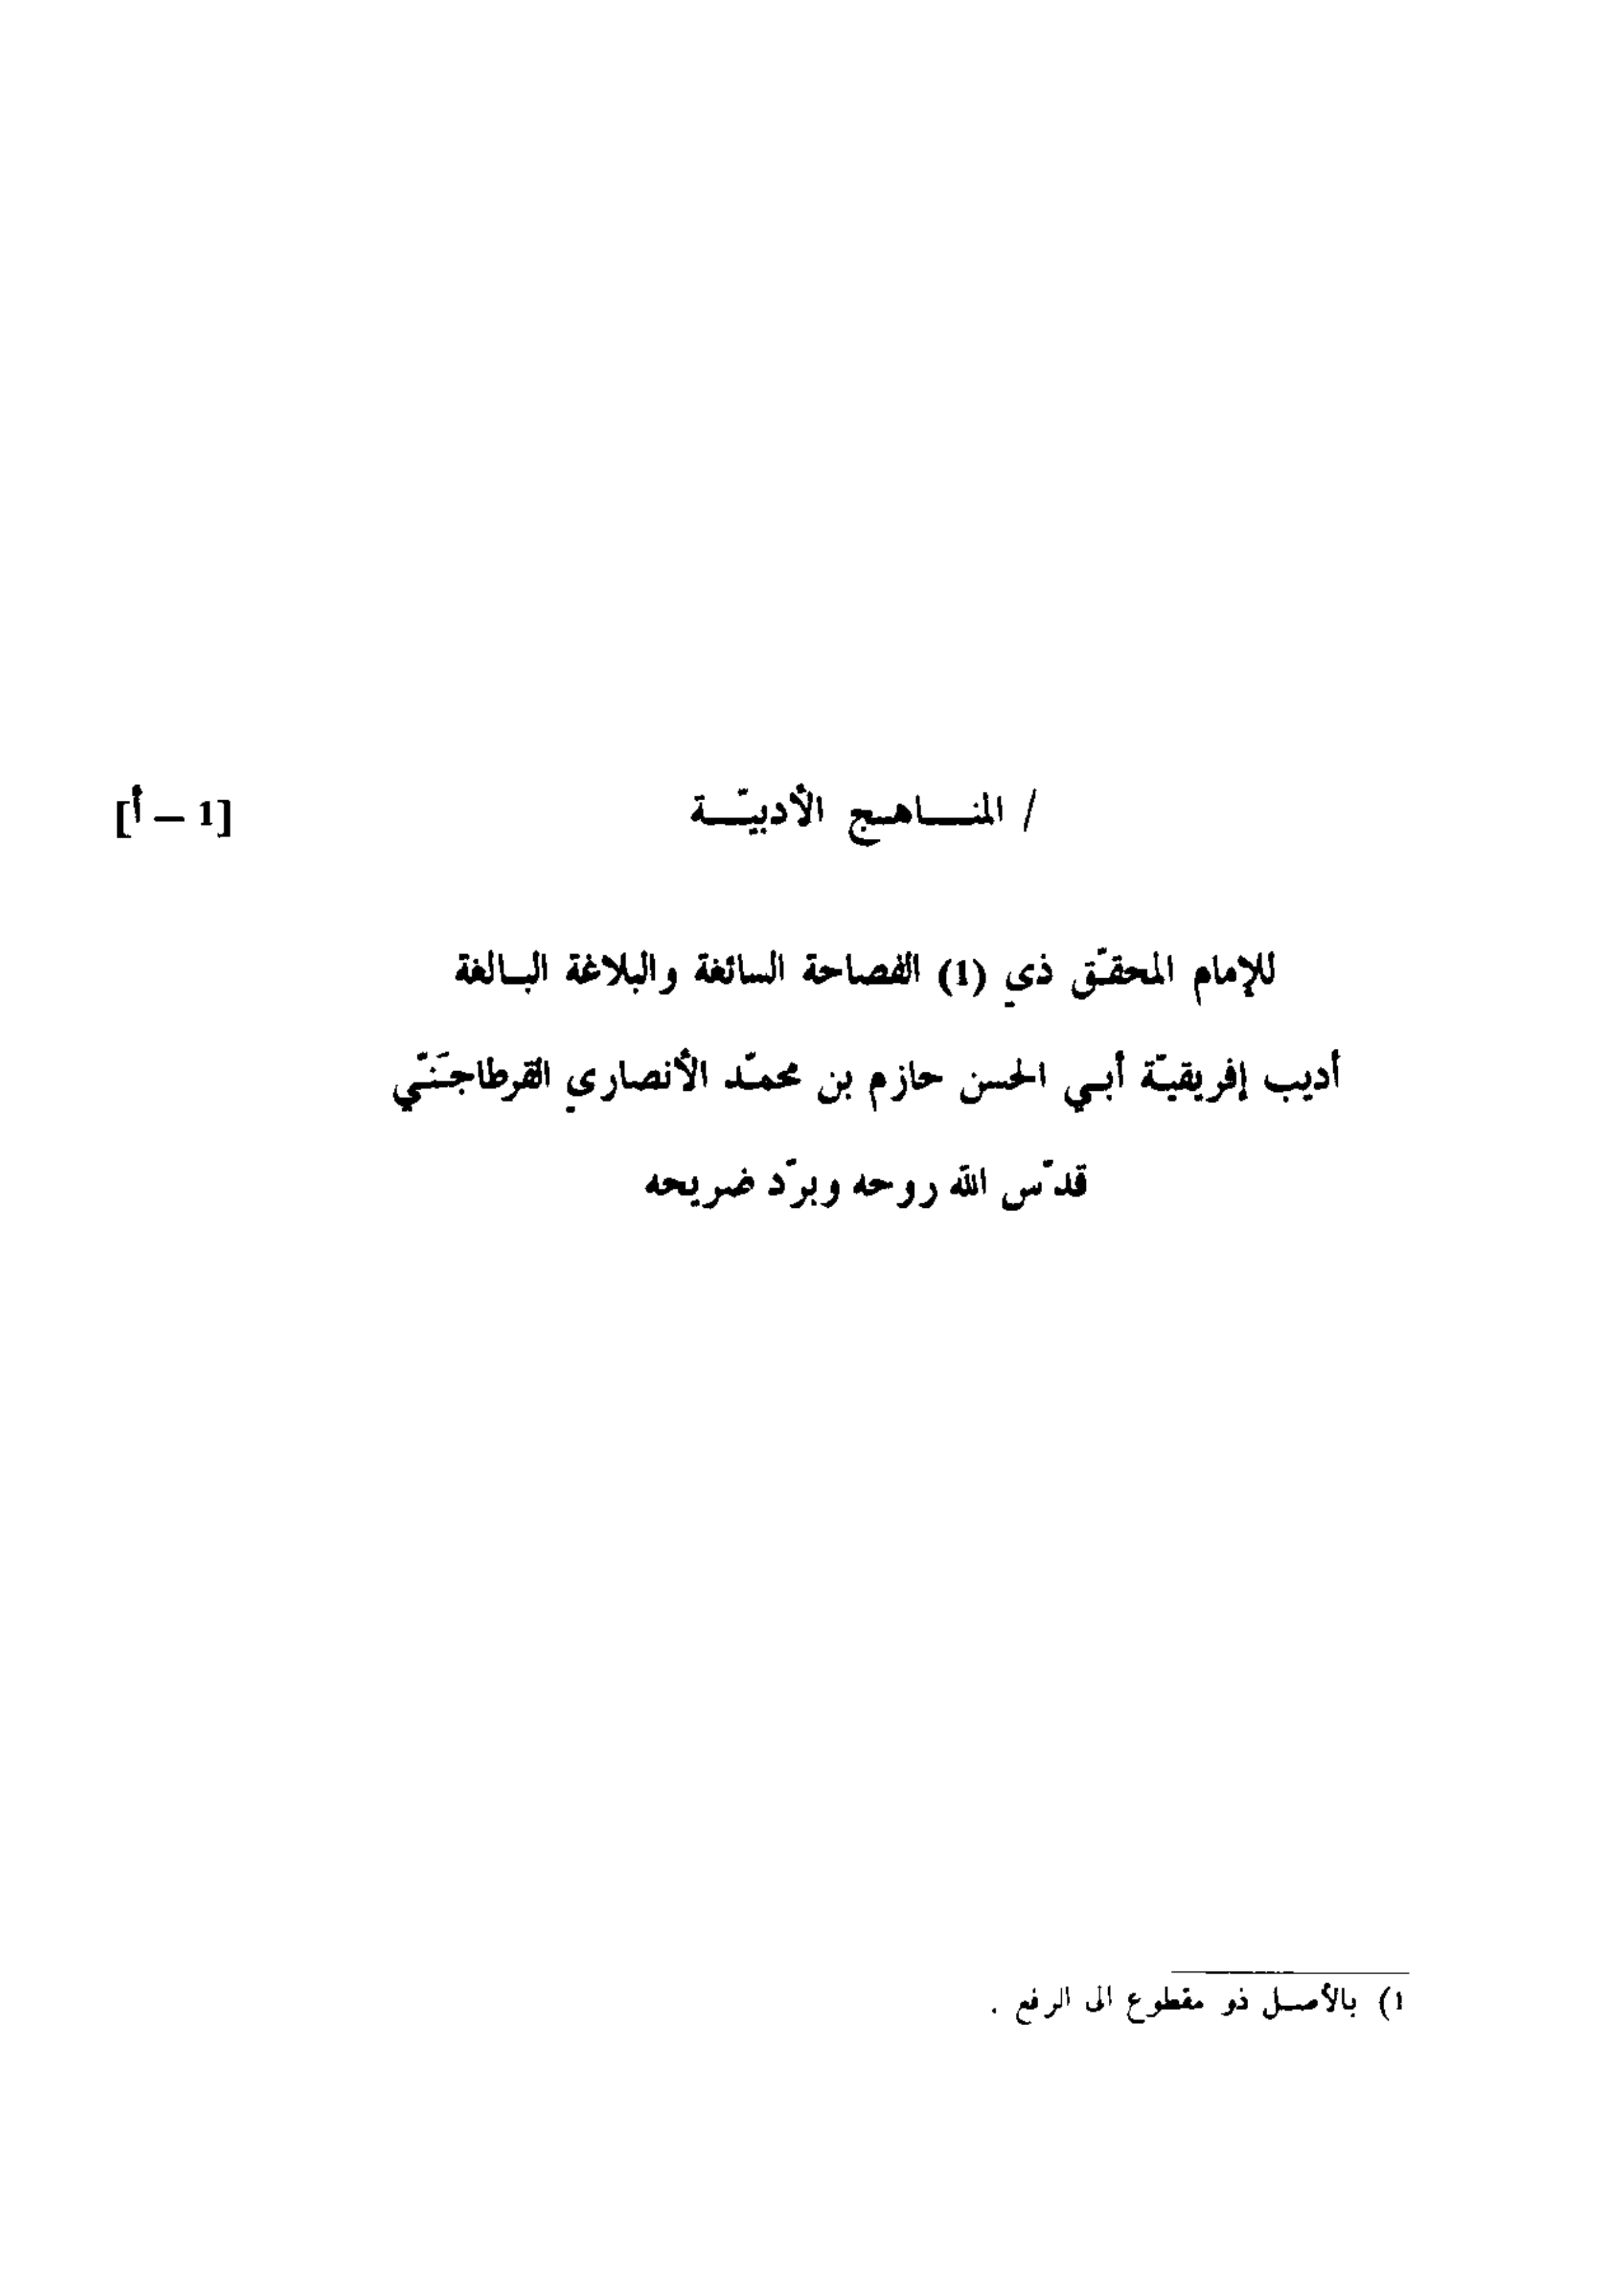 / المنـــاهـج الأدبيّـــة [1 — أ]
للإمام المحقّق ذي (1) الفصاحة السائغة والبلاغة البـالغة
أديب إفريقيّة أبـي الحسن حازم بن محمّد الأنصاري القرطاجـَنّي
قدّس الله روحه وبرّد ضريحه
1) بالأصـل ذو مقطوع الى الرفع .